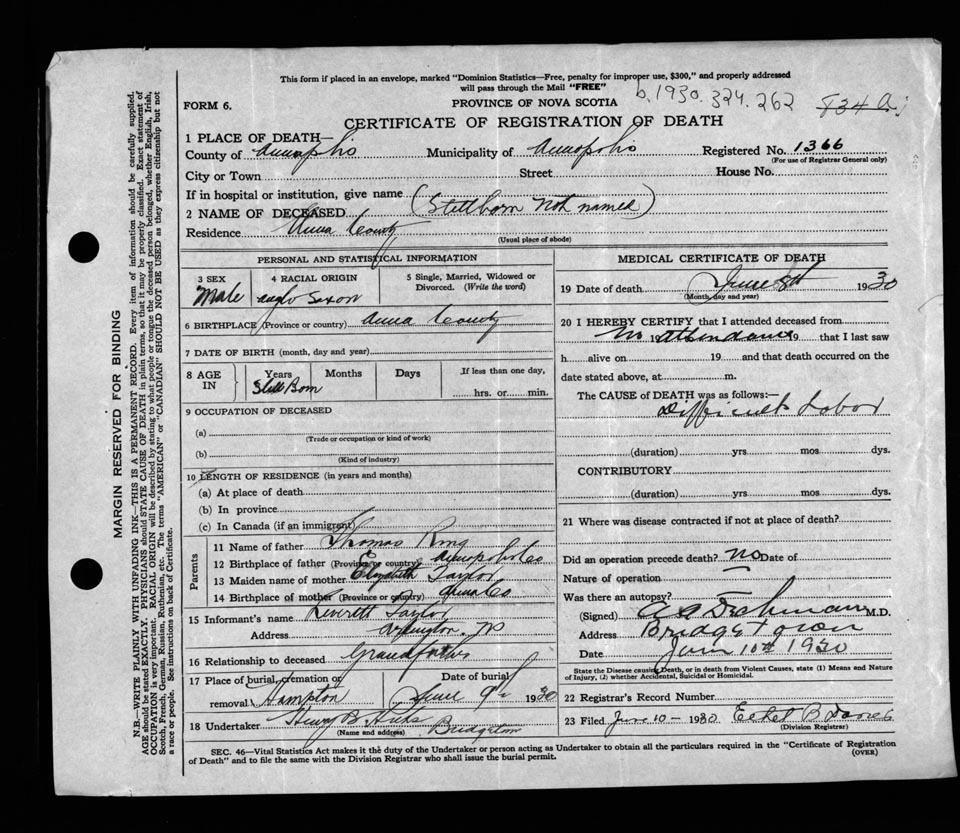 This form if placed in an envelope, marked "Dominion Statistics—Free, penalty for improper use, $300," and properly addressed
will pass through the Mail "FREE"
b.1930.324.262
FORM 6.
PROVINCE OF NOVA SCOTIA
CERTIFICATE OF REGISTRATION OF DEATH
1 PLACE OF DEATH—
County of Annapolis Municipality of Annapolis Registered No. 1366
(For use of Registrar General only)
City or Town Street House No.
If in hospital or institution, give name
2 NAME OF DECEASED (Stillborn Not named)
Residence Anna County
(Usual place of abode)
PERSONAL AND STATISTICAL INFORMATION
3 SEX 4 RACIAL ORIGIN 5 Single, Married, Widowed or Divorced. (Write the word)
Male Anglo Saxon
6 BIRTHPLACE (Province or country) Anna County
7 DATE OF BIRTH (month, day and year)
8 AGE IN Years Months Days If less than one day,
Still Born hrs. or min.
9 OCCUPATION OF DECEASED
(a)
(Trade or occupation or kind of work)
(b)
(Kind of industry)
10 LENGTH OF RESIDENCE (in years and months)
(a) At place of death
(b) In province
(c) In Canada (if an immigrant)
Parents
11 Name of father Thomas Ring
12 Birthplace of father (Province or country) Annapolis Co
13 Maiden name of mother Elizabeth Taylor
14 Birthplace of mother (Province or country) Anna Co
15 Informant's name Leverett Taylor
Address
16 Relationship to deceased Grandfather
17 Place of burial, cremation or removal Hampton Date of burial June 9th 1930
18 Undertaker Henry B Hicks Bridgetown
(Name and address)
MEDICAL CERTIFICATE OF DEATH
19 Date of death June 8th 1930
(Month, day and year)
20 I HEREBY CERTIFY that I attended deceased from
No attendance 19 19 that I last saw
h alive on 19 and that death occurred on the
date stated above, at m.
The CAUSE of DEATH was as follows:—
Difficult Labor
(duration) yrs mos dys.
CONTRIBUTORY
(duration) yrs mos dys.
21 Where was disease contracted if not at place of death?
Did an operation precede death? no Date of
Nature of operation
Was there an autopsy?
(Signed) M.D.
Address Bridgetown
Date June 10th 1930
State the Disease causing Death, or in death from Violent Causes, state (1) Means and Nature
of Injury, (2) whether Accidental, Suicidal or Homicidal.
22 Registrar's Record Number
23 Filed June 10 – 1930 Ethel B
(Division Registrar)
SEC. 46—Vital Statistics Act makes it the duty of the Undertaker or person acting as Undertaker to obtain all the particulars required in the "Certificate of Registration
of Death" and to file the same with the Division Registrar who shall issue the burial permit. (OVER)
MARGIN RESERVED FOR BINDING
N.B.—WRITE PLAINLY WITH UNFADING INK—THIS IS A PERMANENT RECORD. Every item of information should be carefully supplied.
AGE should be stated EXACTLY. PHYSICIANS should STATE CAUSE OF DEATH in plain terms, so that it may be properly classified. Exact statement of
OCCUPATION is very important. RACIAL ORIGIN will be described by stating to what people or tongue the deceased person belonged, whether English, Irish,
Scotch, French, German, Russian, Ruthenian, etc. The terms "AMERICAN" or "CANADIAN" SHOULD NOT BE USED as they express citizenship but not
a race or people. See instructions on back of Certificate.